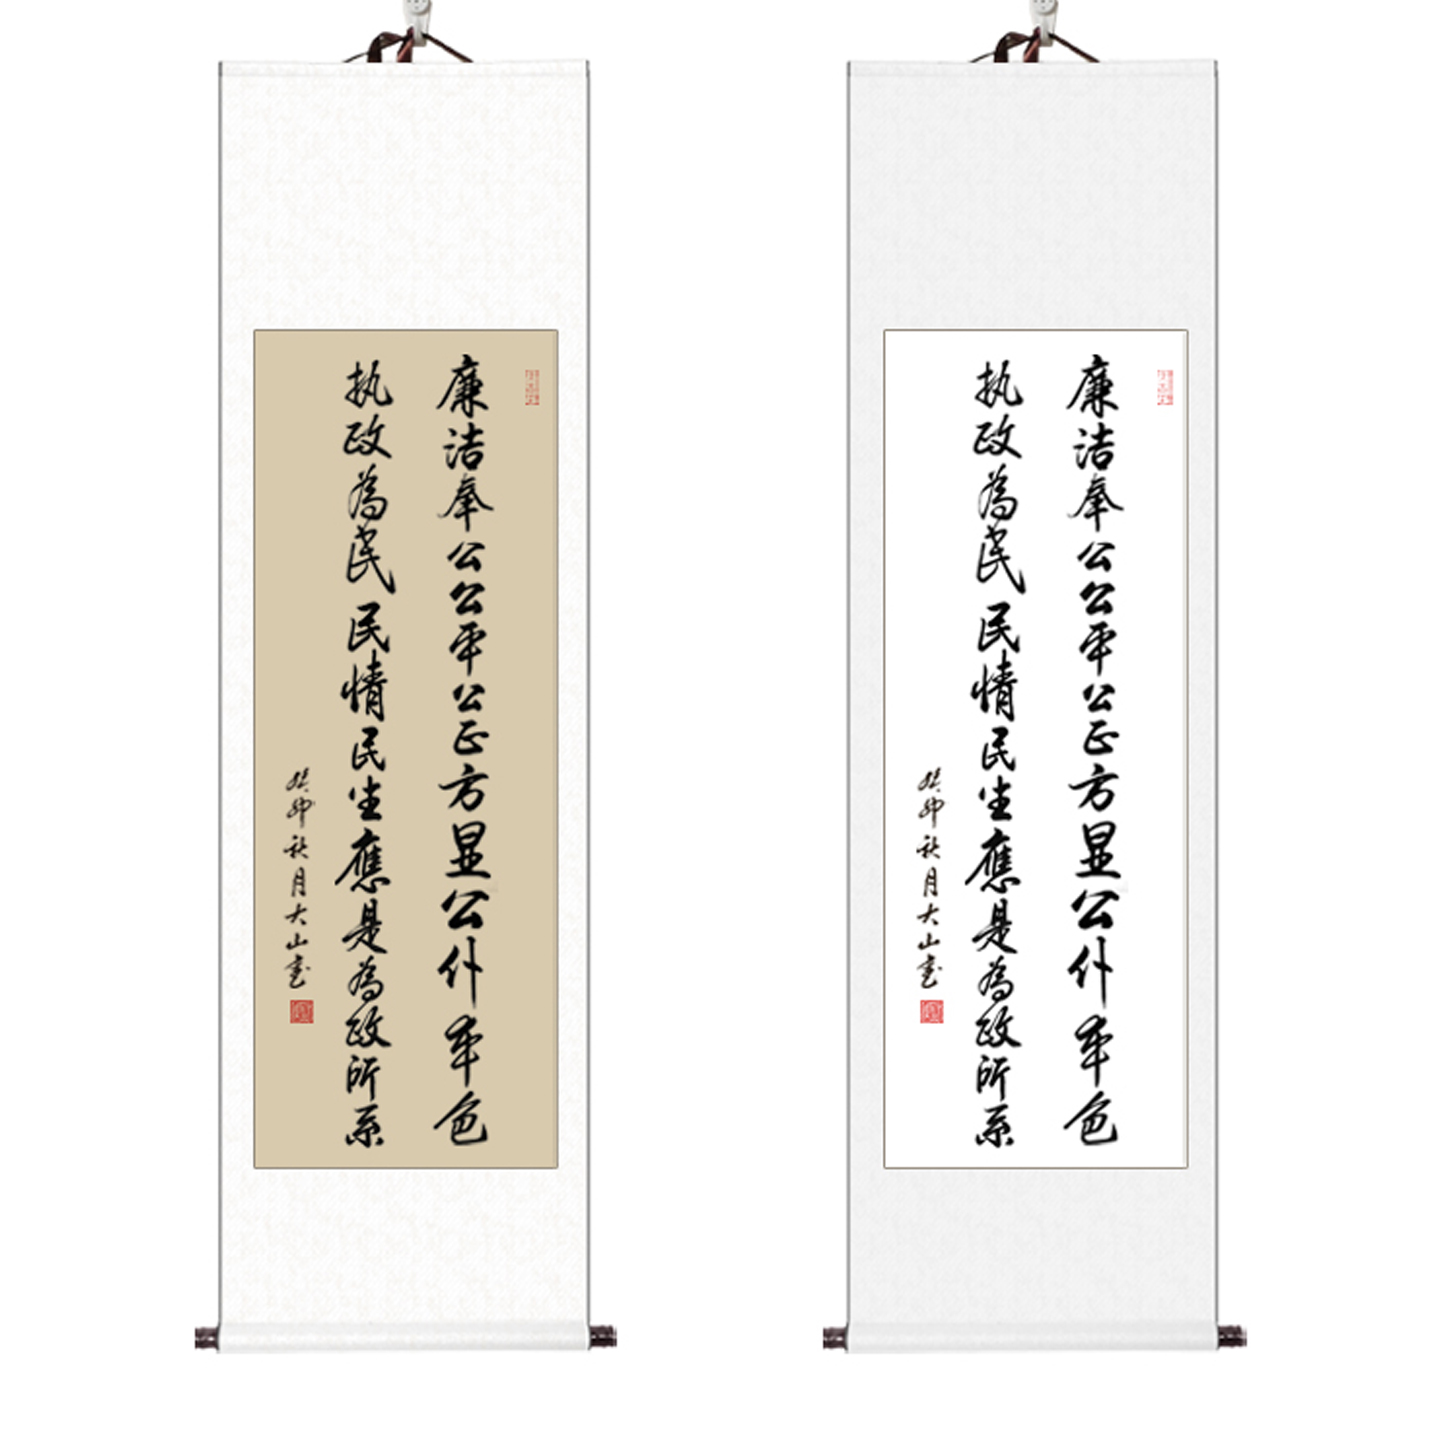 廉洁奉公公平公正方显公仆本色
执政為民民情民生應是為政所系
癸卯秋月大山书
廉洁奉公公平公正方显公仆本色
执政為民民情民生應是為政所系
癸卯秋月大山书